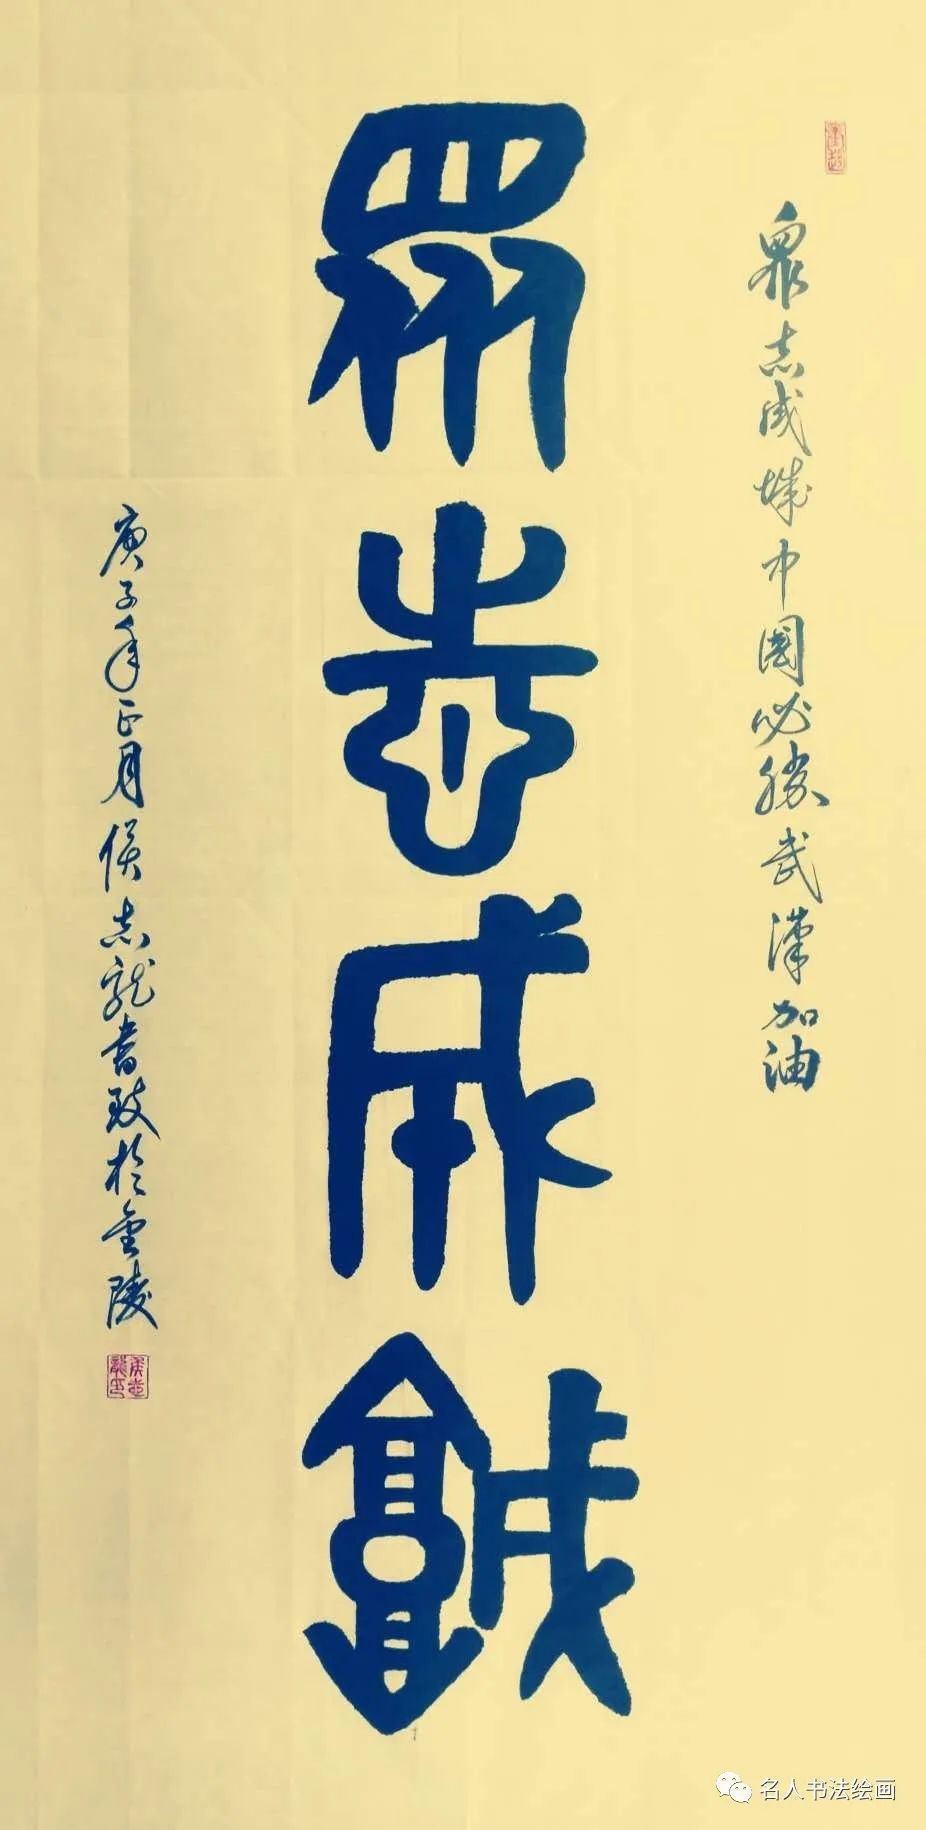 眾志成城中國必勝武漢加油
眾志成城
庚子年正月侯志龍書致於金陵
名人书法绘画